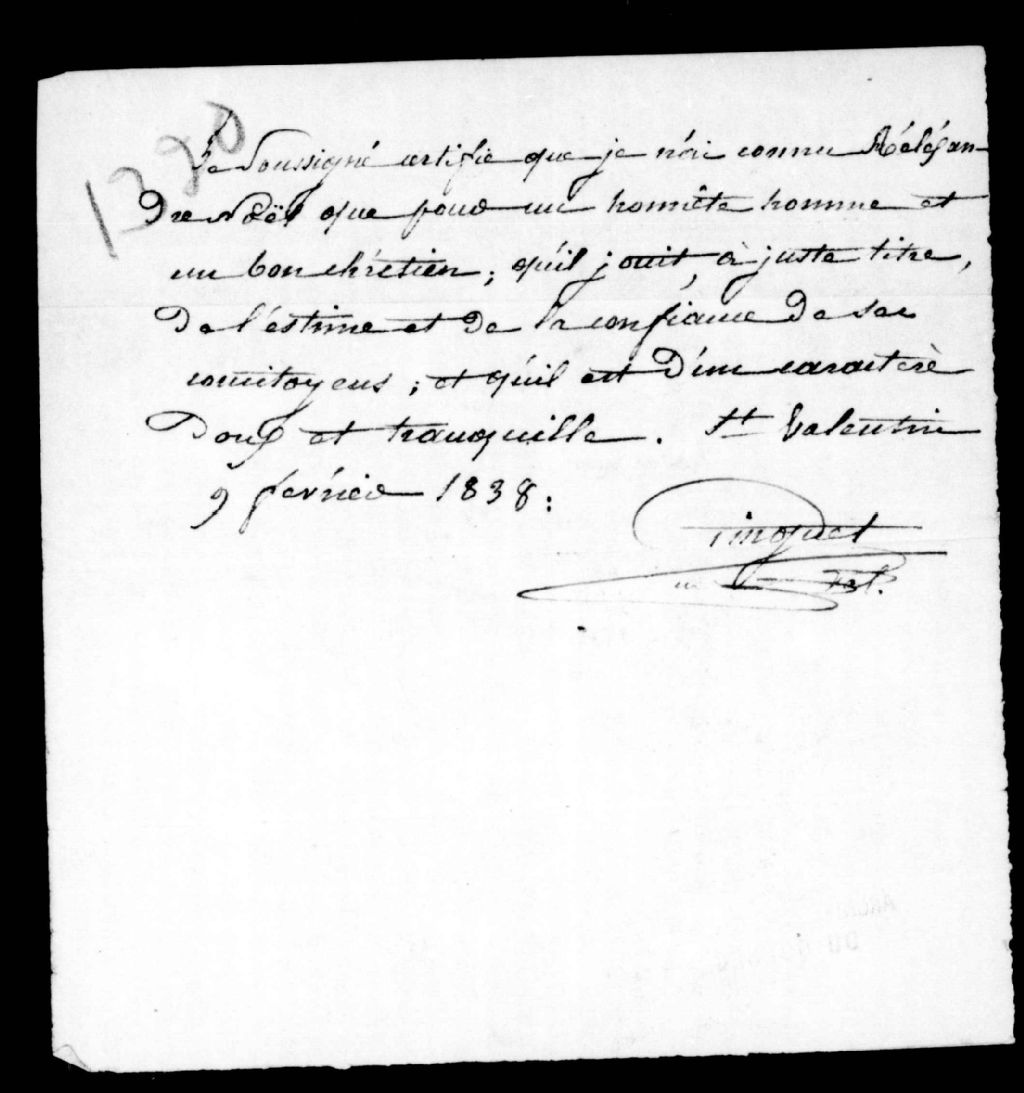 1320
Je Soussigné certifie que je n'ai connu
dre Noël que pour un honnête homme et
un bon chrétien; qu'il jouit, à juste titre,
De l'estime et De la confiance De ses
concitoyens; et qu'il est D'un caractère
Doux et tranquille. St. Valentin
9 février 1838:
Pinquet